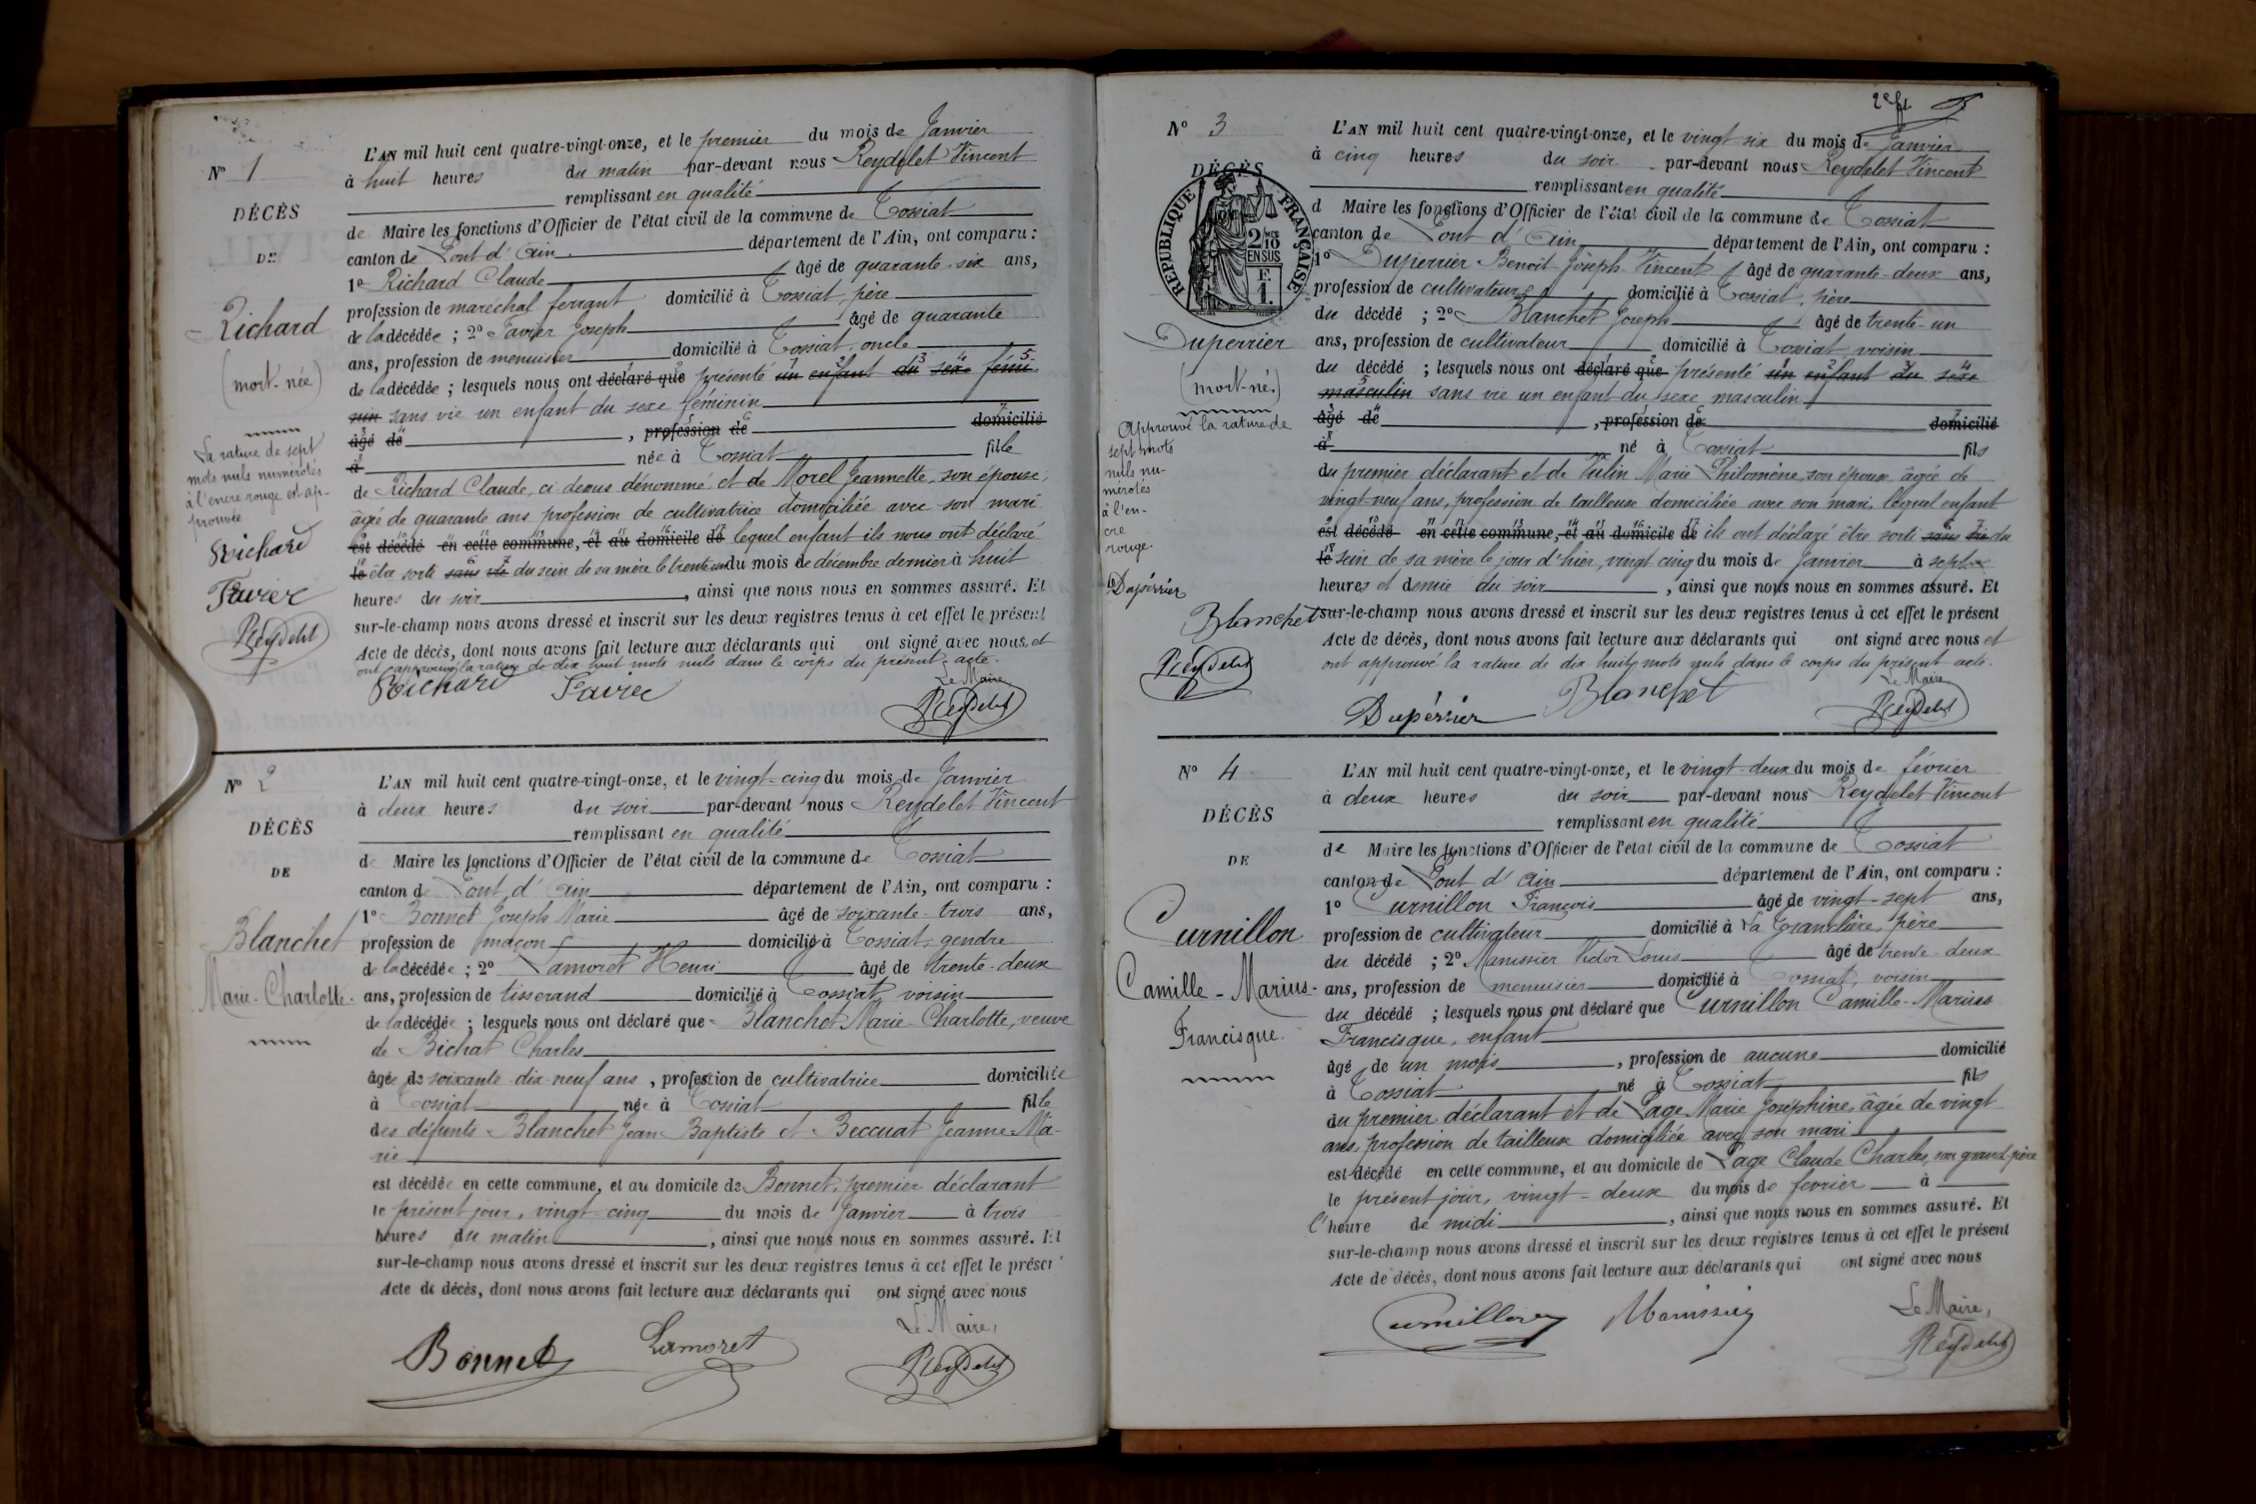 N° 1
DÉCÈS
DE
Richard
(mort-née)
La rature de sept
mots nuls numérotés
à l'encre rouge est ap-
prouvée
Richard
Favier
Reydelet
L'AN mil huit cent quatre-vingt-onze, et le premier du mois de Janvier
à huit heures du matin par-devant nous Reydelet Vincent
remplissant en qualité
de Maire les fonctions d'Officier de l'état civil de la commune de Tossiat
canton de Pont d'Ain département de l'Ain, ont comparu :
1° Richard Claude âgé de quarante-six ans,
profession de maréchal ferrant domicilié à Tossiat, père
de la décédée ; 2° Favier Joseph âgé de quarante
ans, profession de menuisier domicilié à Tossiat, oncle
de la décédée ; lesquels nous ont déclaré que présenté un enfant du sexe fémi-
nin sans vie un enfant du sexe féminin
âgé de , profession de domicilié
à née à Tossiat fille
de Richard Claude, ci-dessus dénommé et de Morel Jeannette, son épouse,
âgée de quarante ans profession de cultivatrice domiciliée avec son mari
est décédé en cette commune, et au domicile de lequel enfant ils nous ont déclaré
le être sorti sans vie du sein de sa mère le trente un du mois de décembre dernier à huit
heures du soir , ainsi que nous nous en sommes assuré. Et
sur-le-champ nous avons dressé et inscrit sur les deux registres tenus à cet effet le présent
Acte de décès, dont nous avons fait lecture aux déclarants qui ont signé avec nous, et
ont approuvé la rature de dix huit mots nuls dans le corps du présent acte.
Richard Favier Le Maire
Reydelet
N° 2
DÉCÈS
DE
Blanchet
Marie-Charlotte
L'AN mil huit cent quatre-vingt-onze, et le vingt-cinq du mois de Janvier
à deux heures du soir par-devant nous Reydelet Vincent
remplissant en qualité
de Maire les fonctions d'Officier de l'état civil de la commune de Tossiat
canton de Pont d'Ain département de l'Ain, ont comparu :
1° Bonnet Joseph Marie âgé de soixante-trois ans,
profession de maçon domicilié à Tossiat, gendre
de la décédée ; 2° Lamoret Henri âgé de trente-deux
ans, profession de tisserand domicilié à Tossiat, voisin
de la décédée ; lesquels nous ont déclaré que Blanchet Marie-Charlotte, veuve
de Bichat Charles
âgée de soixante dix-neuf ans , profession de cultivatrice domiciliée
à Tossiat née à Tossiat fille
des défunts Blanchet Jean-Baptiste et Beccuat Jeanne-Ma-
rie
est décédée en cette commune, et au domicile de Bonnet, premier déclarant
le présent jour, vingt-cinq du mois de Janvier à trois
heures du matin , ainsi que nous nous en sommes assuré. Et
sur-le-champ nous avons dressé et inscrit sur les deux registres tenus à cet effet le présent
Acte de décès, dont nous avons fait lecture aux déclarants qui ont signé avec nous
Bonnet Lamoret Le Maire,
Reydelet
N° 3
DÉCÈS
RÉPUBLIQUE FRANÇAISE
2/10 EN SUS
Duperrier
(mort-né.)
Approuvé la rature de
sept mots
nuls nu-
mérotés
à l'en-
cre
rouge.
Dupérrier
Blanchet
Reydelet
L'AN mil huit cent quatre-vingt-onze, et le vingt six du mois de Janvier
à cinq heures du soir par-devant nous Reydelet Vincent
remplissant en qualité
d Maire les fonctions d'Officier de l'état civil de la commune de Tossiat
canton de Pont d'Ain département de l'Ain, ont comparu :
1° Duperrier Benoit Joseph Vincent âgé de quarante-deux ans,
profession de cultivateur domicilié à Tossiat, père
du décédé ; 2° Blanchet Joseph âgé de trente-un
ans, profession de cultivateur domicilié à Tossiat, voisin
du décédé ; lesquels nous ont déclaré que présenté un enfant du sexe
masculin sans vie un enfant du sexe masculin
âgé de , profession de domicilié
à né à Tossiat fils
du premier déclarant et de Vulin Marie Philomène, son épouse âgée de
vingt-neuf ans, profession de tailleuse domiciliée avec son mari, lequel enfant
est décédé en cette commune, et au domicile de ils ont déclaré être sorti sans vie du
le sein de sa mère le jour d'hier, vingt cinq du mois de Janvier à sept
heures et demie du soir , ainsi que nous nous en sommes assuré. Et
sur-le-champ nous avons dressé et inscrit sur les deux registres tenus à cet effet le présent
Acte de décès, dont nous avons fait lecture aux déclarants qui ont signé avec nous et
ont approuvé la rature de dix huit mots nuls dans le corps du présent acte.
Dupérrier Blanchet Le Maire
Reydelet
N° 4
DÉCÈS
DE
Curnillon
Camille-Marius-
Francisque
L'AN mil huit cent quatre-vingt-onze, et le vingt-deux du mois de février
à deux heures du soir par-devant nous Reydelet Vincent
remplissant en qualité
de Maire les fonctions d'Officier de l'état civil de la commune de Tossiat
canton de Pont d'Ain département de l'Ain, ont comparu :
1° Curnillon François âgé de vingt-sept ans,
profession de cultivateur domicilié à La Tranclière, père
du décédé ; 2° Manissier Louis âgé de trente-deux
ans, profession de menuisier domicilié à Tossiat, voisin
du décédé ; lesquels nous ont déclaré que Curnillon Camille-Marius
Francisque, enfant
âgé de un mois , profession de aucune domicilié
à Tossiat né à Tossiat fils
du premier déclarant et de Page Marie Joséphine, âgée de vingt
ans, profession de tailleuse domiciliée avec son mari
est décédé en cette commune, et au domicile de Page Claude Charles, son grand-père
le présent jour, vingt-deux du mois de février à
l'heure de midi , ainsi que nous nous en sommes assuré. Et
sur-le-champ nous avons dressé et inscrit sur les deux registres tenus à cet effet le présent
Acte de décès, dont nous avons fait lecture aux déclarants qui ont signé avec nous
Curnillon Manissier Le Maire,
Reydelet